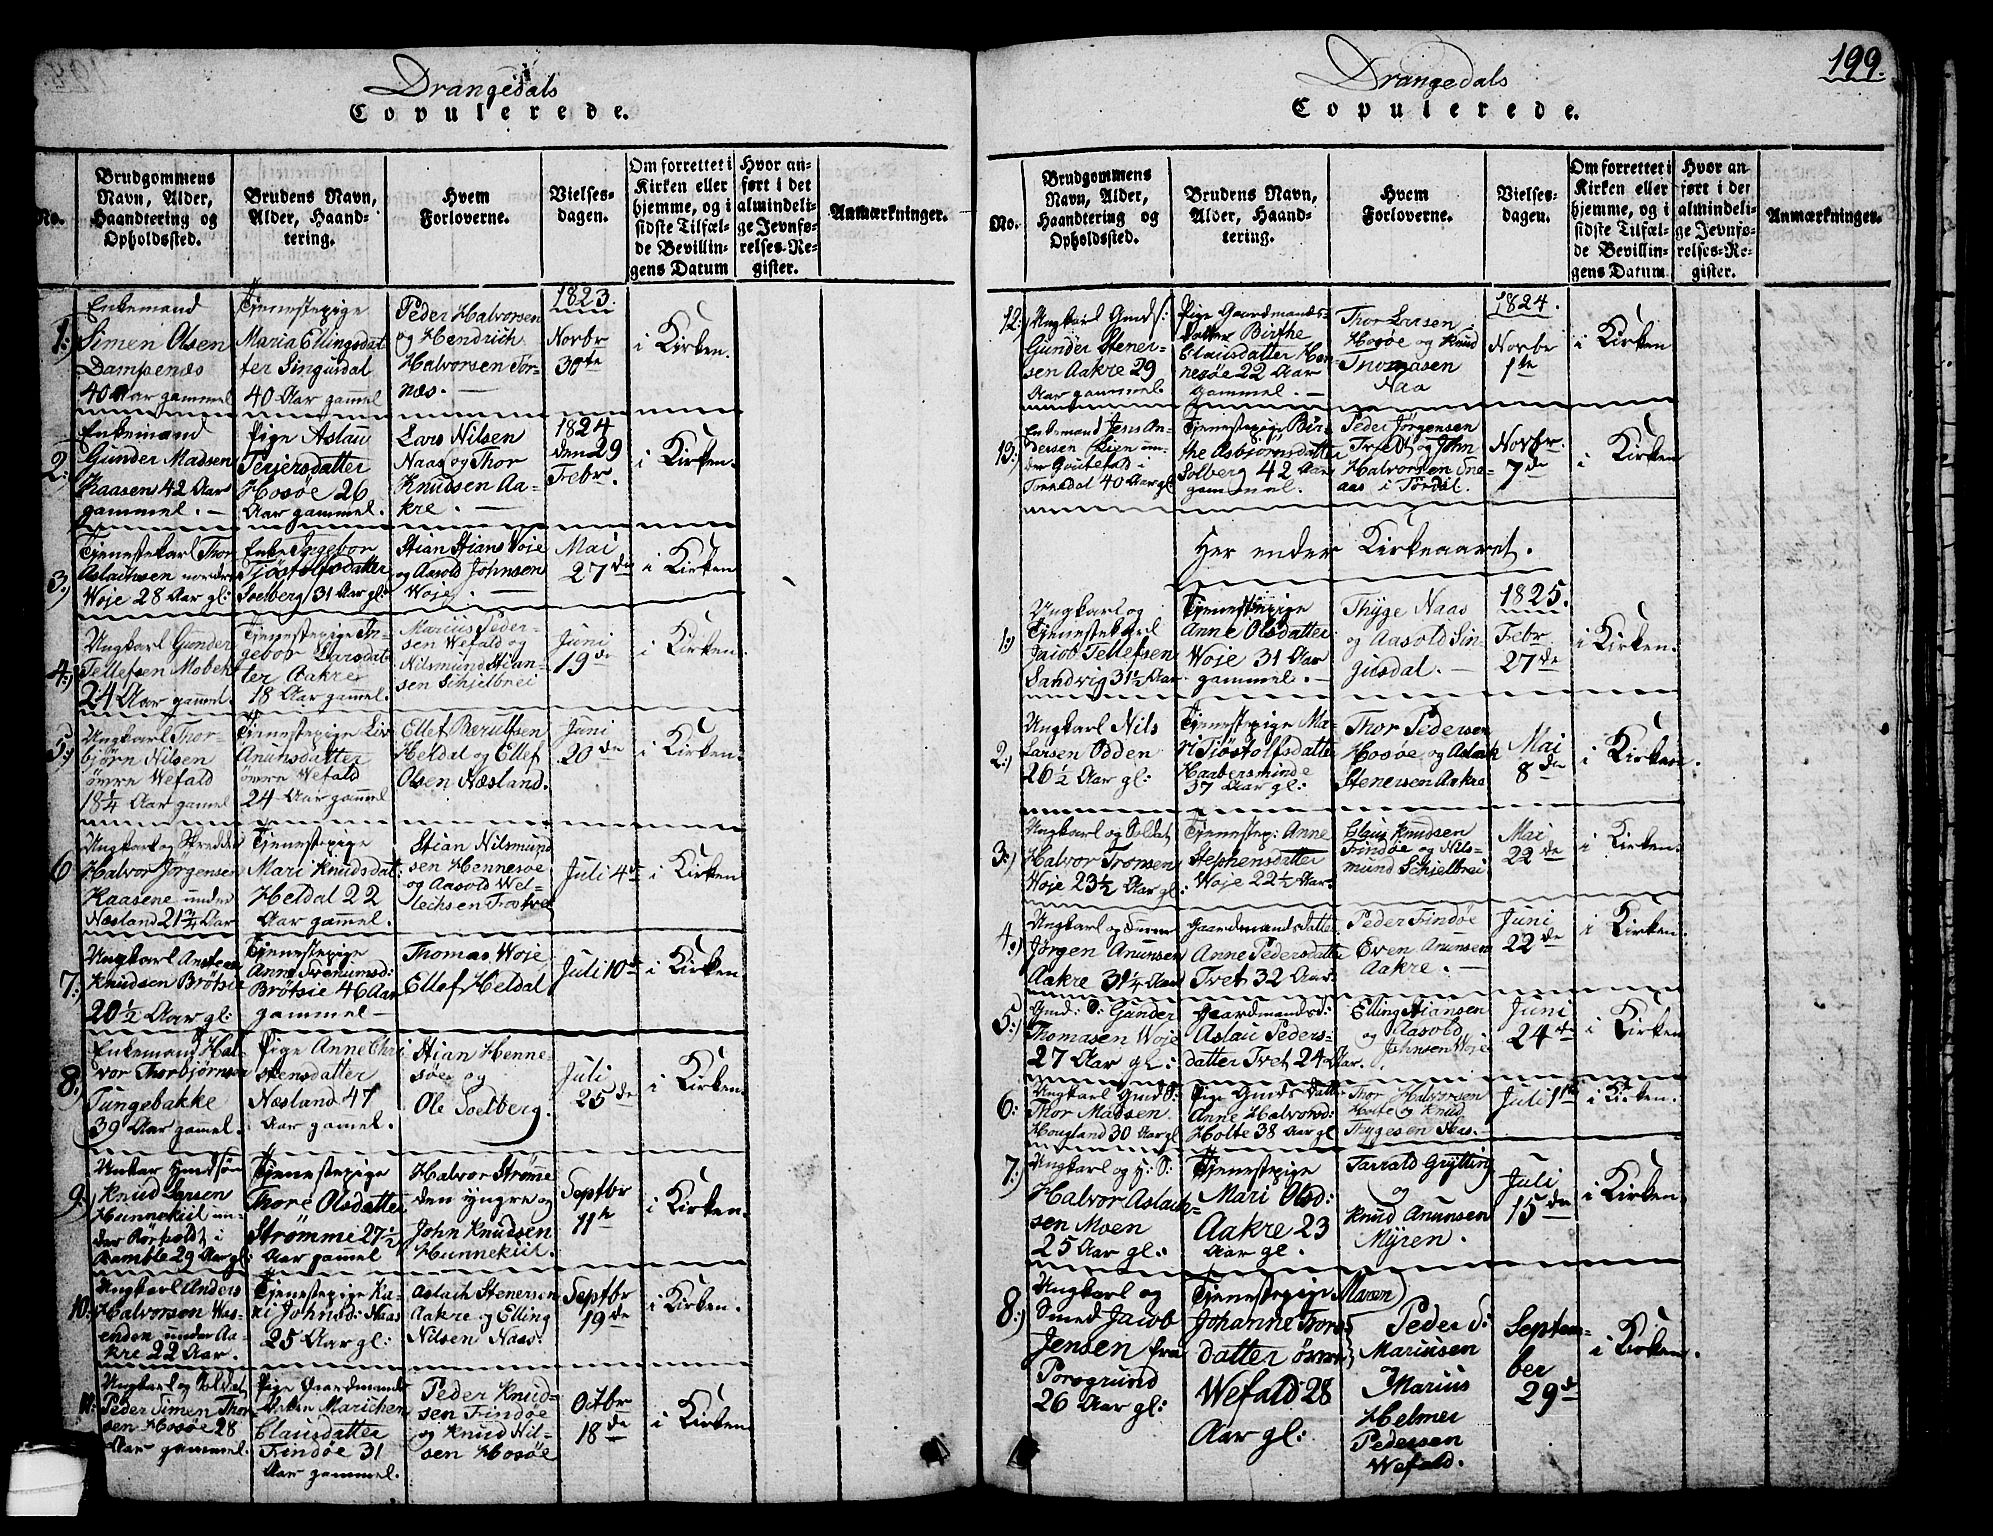 Drangedals
Copulerede.
No.
Brudgommens
Navn, Alder,
Haandtering og
Opholdssted.
Brudens Navn,
Alder, Haand-
tering.
Hvem
Forloverne.
Vielses-
dagen.
Om forrettet i
Kirken eller
hjemme, og i
sidste Tilfæl-
de Bevillin-
gens Datum
Hvor an-
ført i det
almindeli-
ge Jevnfø-
relses-Re-
gister.
Anmærkninger.
1:)
Enkemand
Simen Olsen
Dampenæs
40 Aar gammel
Tjenestepige
Maria Ellingsdat
ter Singusdal
40 Aar gamel
Peder Halvorsen
og Hendrich
Halvorsen Tor-
næs. -
1823.
Novbr
30te
i Kirken.
2:)
Enkemand
Gunder Madsen
Kaasen 42 Aar
gammel. -
Pige Aslau
Terjersdatter
Hosøe 26
Aar gammel.
Lars Nilsen
Naas og Thor
Knudsen Aa-
kre. -
1824
den 29
Febr.
i Kirken.
3:)
Tjenestekarl Thor
Aslachsen nordre
Woje 28 Aar gl:
Enke Ingebor
Tjøstolfsdatter
Soelberg 31 Aar gl:
Stian Stians Woje
og Aasold Johnsen
Woje. -
Mai
27de
i Kirken
4:)
Ungkarl Gunder
Tellefsen Mobek
24 Aar gamel.
Tjenestepige In-
gebor Larsdat-
ter Aakre
18 Aar gamel.
Marius Peder-
sen Wefald og
Nilsmund Stian-
sen Schjelbrei
Juni
19de
i Kirken.
5:)
Ungkarl Thor-
bjørn Nilsen
øvre Wefald
18¼ Aar gamel
Tjenestepige Liv
Anunsdatter
øvre Wefald
24 Aar gammel
Ellef Berulfsen
Heldal og Ellef
Olsen Næsland.
Juni
20de
i Kirken.
6
Ungkarl og Skredder
Halvor Jørgensen
Kaasene under
Næsland 21¾ Aar
Tjenestepige
Mari Knudsdat:
Heldal 22
Aar gammel.
Stian Nilsmund
sen Hennesøe
og Aasold Wel-
lechsen Trostvet
Juli 4de
i Kirken
7:)
Ungkarl
Knudsen Brøtsie
20½ Aar gl:
Tjenestepige
Anne
Brøtsie 46 Aar
gammel -
Thomas Woje
Ellef Heldal
Juli 10de
i Kirken.
8:)
Enkemand Hal-
vor Thorbjørnsen
Tungebakke
39 Aar gamel.
Pige Anne Chri
stensdatter
Næsland 47
Aar gamel.
Stian Henne-
søe og
Ole Soelberg.
Juli
25de
i Kirken.
9:)
Unkar Gmdsøn
Knud Larsen
Hunnekiil un-
der Rørholdt i
Bamble 29 Aar gl:
Tjenestepige
Thore Olsdatter
Strømme 27½
Aar gammel
Halvor Strømme
den yngre og
John Knudsen
Hunnekiil.
Septbr
11te
i Kirken.
10:)
Ungkarl Anders
Halvorsen Was-
enden under Aa-
kre 22 Aar.
Tjenestepige Ka-
ri Johnsd: Naas
25 Aar gl:
Aslach Stenersen
Aakre og Elling
Nilsen Naas.
Septbr
19de
i Kirken.
11:
Ungkarl og Soldat
Peder Simen Thor-
sen Hosøe 28
Aar gammel.
Pige Gaardmands
datter Marichen
Clausdatter
Findøe 31
Aar gammel.
Peder Knud-
sen Findøe
og Knud Nil-
sen Hosøe
Octbr
18de
i Kirken
199.
Drangedals
Copulerede.
No.
Brudgommens
Navn, Alder,
Haandtering og
Opholdssted.
Brudens Navn,
Alder, Haand-
tering.
Hvem
Forloverne.
Vielses-
dagen.
Om forrettet i
Kirken eller
hjemme, og i
sidste Tilfæl-
de Bevillin-
gens Datum.
Hvor an-
ført i det
almindeli-
ge Jevnfø-
relses-Re-
gister.
Anmærkninger.
12:)
Ungkarl Gmds:
Gunder Stener-
sen Aakre 29
Aar gammel.
Pige Gaardmands-
datter Birthe
Clausdatter Hen-
nesøe 22 Aar
gammel. -
Thor Larsen
Hosøe og Knud
Thomasen
Naa
1824.
Novbr
1te
i Kirken
13:)
Enkemand Jens An-
dersen Lien un-
der Goutefald i
Trøesdal 40 Aar gl
Tjenestepige Bir-
the Asbjørnsdatter
Solberg 42 Aar
gammel.
Peder Jørgensen
Tvedt og John
Halvorsen One-
aas i Tørdal.
Novbr.
7de
i Kirken
Her ender Kirkeaaret.
1:)
Ungkarl og
Tjenestekarl
Jacob Tellefsen
Sandvig 31½ Aar
Tjenestepige
Anne Olsdatter
Woje 31 Aar
gammel. -
Thyge Naas
og Aasold Sin-
gusdal. -
1825.
Febr
27de
i Kirken.
2:)
Ungkarl Nils
Larsen Odden
26½ Aar gl:
Tjenestepige Ma-
ri Tjøstolfsdatter
Haabersminde
37 Aar gl:
Thor Pedersen
Hosøe og Aslach
Stenersen Aakre
Mai
8de
i Kirken.
3:)
Ungkarl og Soldat
Halvor Tronsen
Woje 23½ Aar gl:
Tjenestep: Anne
Stephensdatter
Woje 22½ Aar.
Claus Knudsen
Findøe og Nils-
mund Schjelbrei
Mai
22de
i Kirken.
4:)
Ungkarl og
Jørgen Anunsen
Aakre 31¼ Aar
Gaardmandsdatter
Anne Pedersdatter
Tvet 32 Aar.
Peder Findøe
Even Anunsen
Aakre. -
Juni
22de
i Kirken.
5:)
Gmd: S: Gunder
Thomasen Woje
27 Aar gl:
Gaardmandsd:
Aslau Peders-
datter Tvet 24 Aar.
Elling Stiansen
og Aasold
Johnsen Woje
Juni
24de
i Kirken
6:
Ungkarl Gmd S:
Thor Madsen
Hougland 30 Aar gl
Pige Gmds datter
Anne Halvorsd:
Holte 38 Aar gl
Thor Halvorsen
Holte og Knud
Thygesen Naas.
Juli 1te
i Kirken.
7:)
Ungkarl og G: S:
Halvor Aslach-
sen Moen
25 Aar gl:
Tjenestepige
Mari Olsd:
Aakre 23
Aar gl.
Tarrald Grytting
og
Knud Anunsen
Myren.
Juli
15de
i Kirken.
8:)
Ungkarl og
Smed Jacob
Jensen fra
Porsgrund
26 Aar gl:
Tjenestepige Maren
Johanne Thors
datter øvre
Wefald 28
Aar gl:
Peder d:
Mariusen
Marius
Helmer
Pedersen
Wefald.
Septem-
ber
29de
i Kirken.